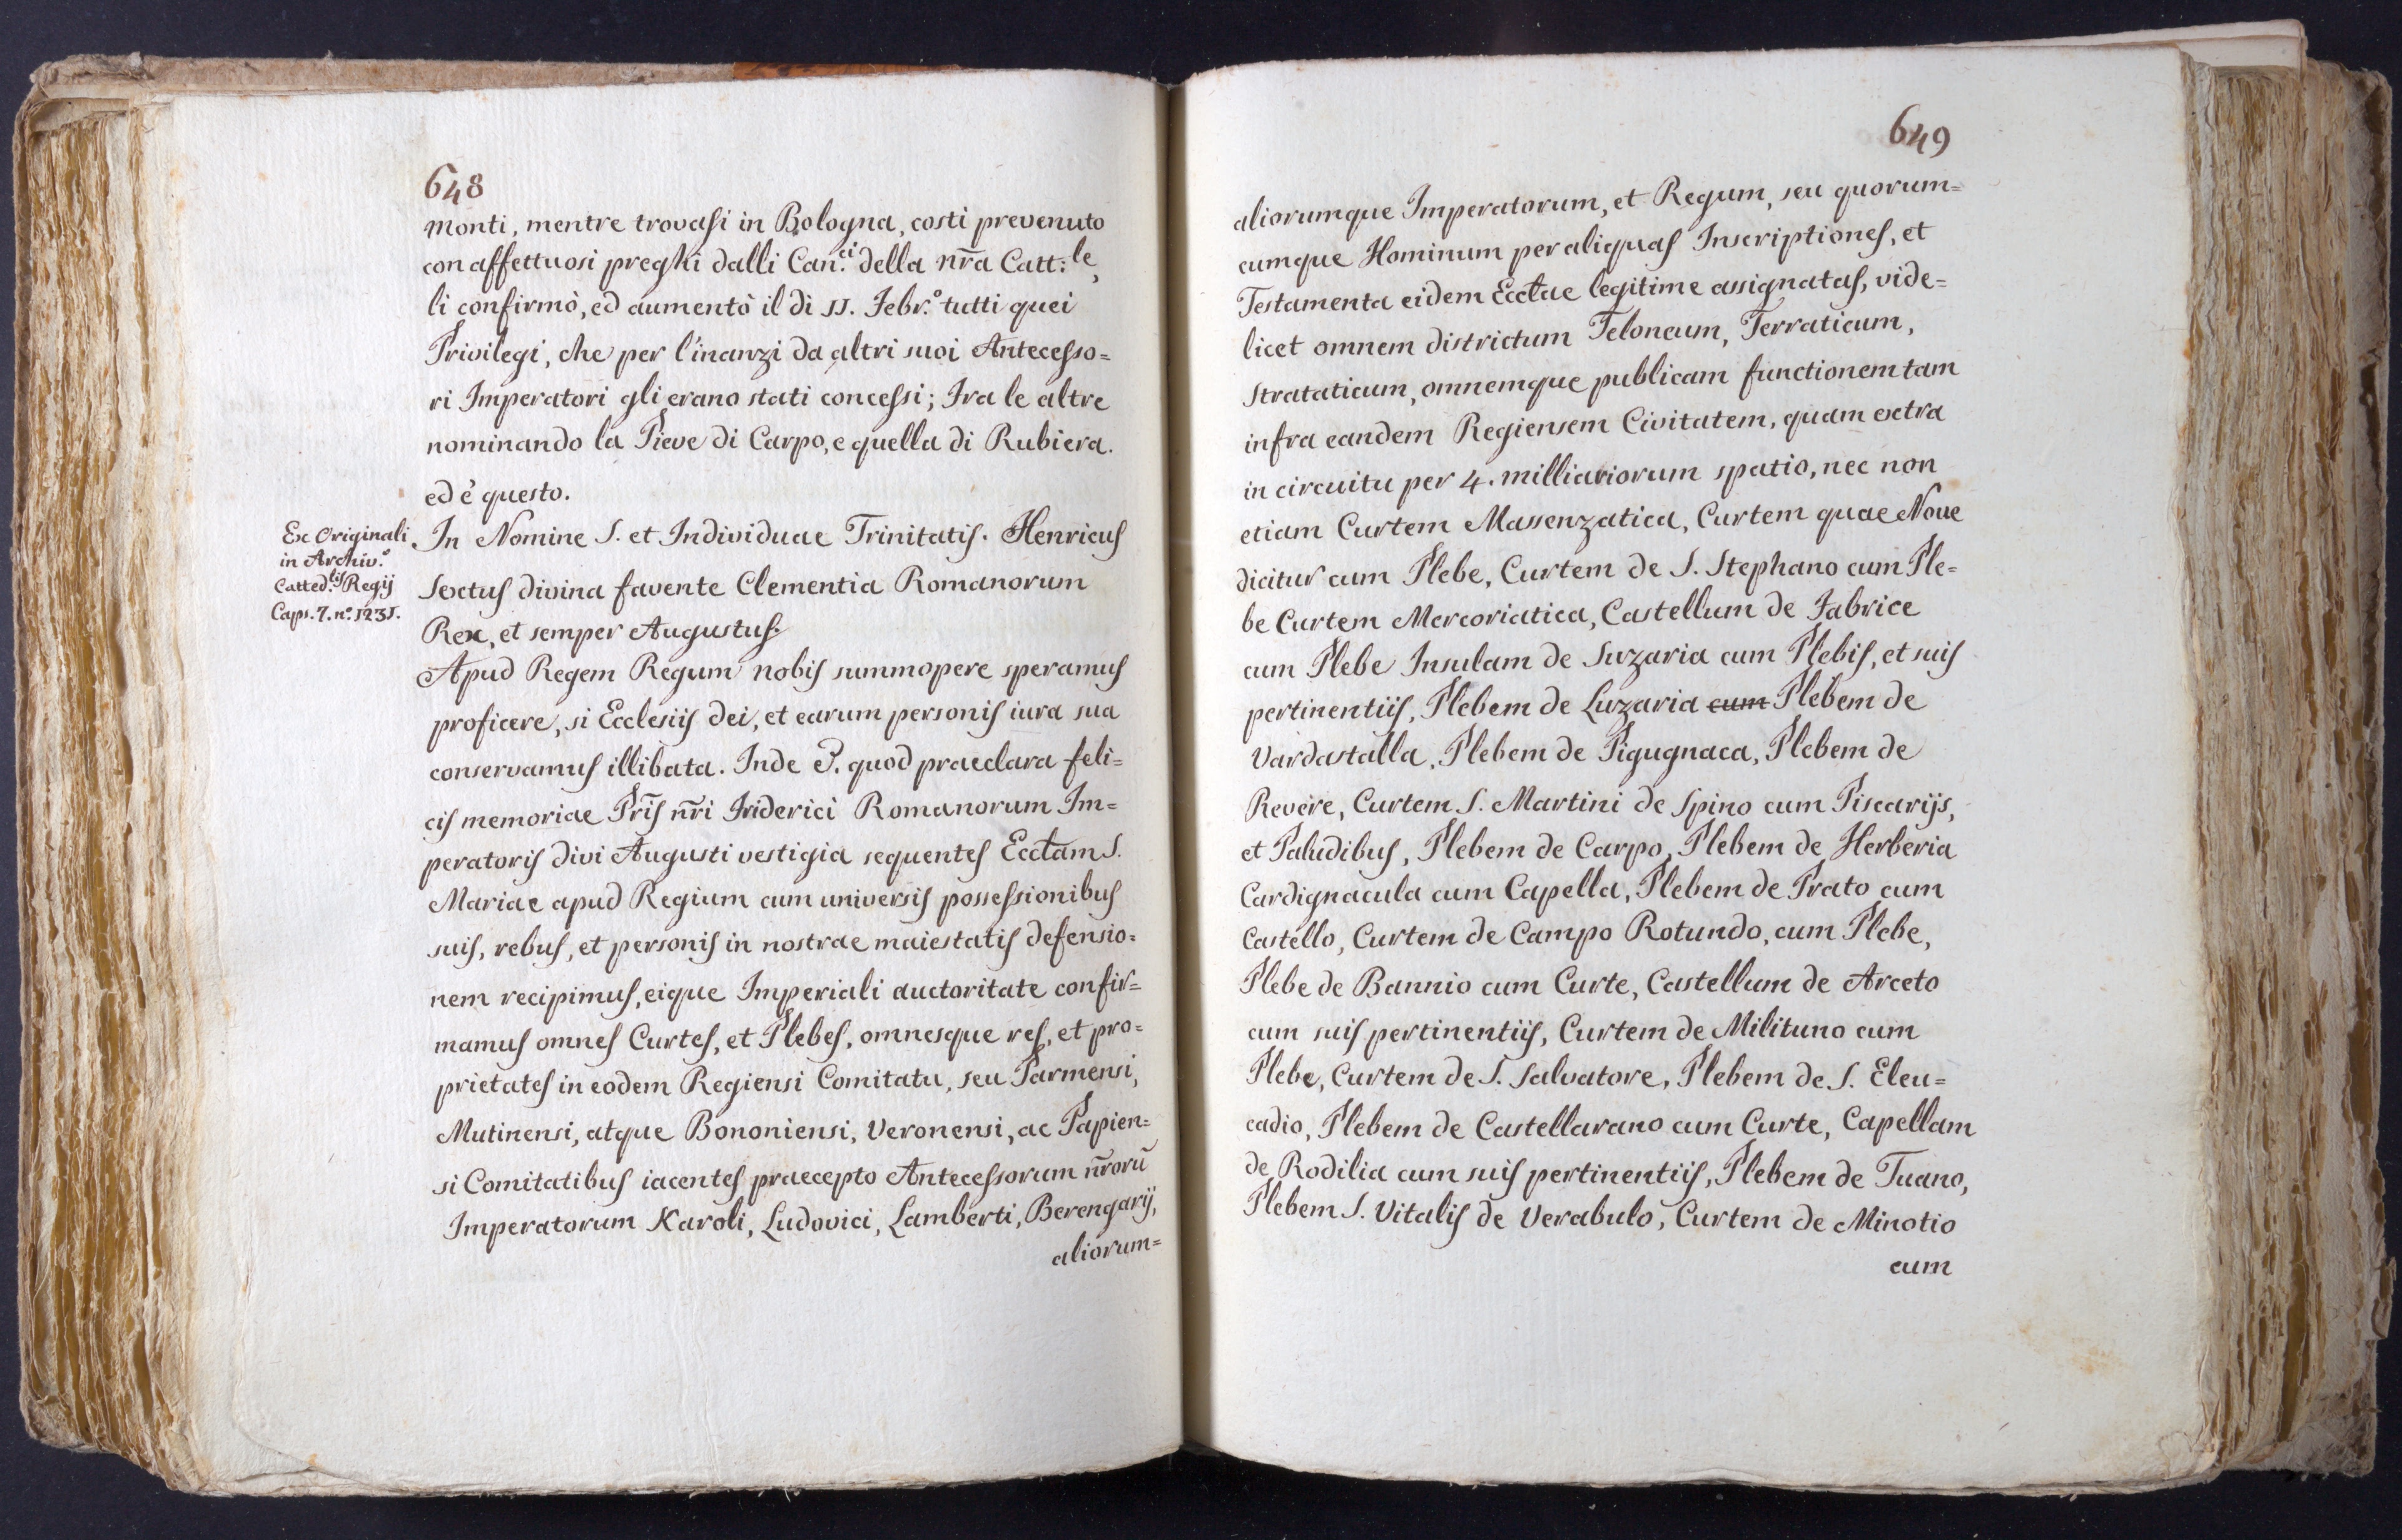 648
monti, mentre trovasi in Bologna, costi prevenuto
con affettuosi preghi dalli Can.ci della nr̃a Catt:le,
li confirmò, ed aumentò il dì 11. Febr.o tutti quei
Privilegi, che per l'inanzi da altri suoi Antecesso=
ri Imperatori gli erano stati concessi; Fra le altre
nominando la Pieve di Carpo, e quella di Rubiera.
ed è questo.
Ex Originali
in Archiv.o
Catted.lis Regij
Caps. 7. n.o 1231.
In Nomine S. et Individuae Trinitatis. Henricus
Sextus divina favente Clementia Romanorum
Rex, et semper Augustus.
Apud Regem Regum nobis summopere speramus
proficere, si Ecclesiis dei, et earum personis iura sua
conservamus illibata. Inde é. quod praeclara feli=
cis memoriae Pr̃is nr̃i Friderici Romanorum Im=
peratoris divi Augusti vestigia sequentes Ecctam S.
Mariae apud Regium cum universis possessionibus
suis, rebus, et personis in nostrae maiestatis defensio=
nem recipimus, eique Imperiali auctoritate confir=
mamus omnes Curtes, et Plebes, omnesque res, et pro=
prietates in eodem Regiensi Comitatu, seu Parmensi,
Mutinensi, atque Bononiensi, Veronensi, ac Papien=
si Comitatibus iacentes praecepto Antecessorum nr̃orū
Imperatorum Karoli, Ludovici, Lamberti, Berengarij,
aliorum=
649
aliorumque Imperatorum, et Regum, seu quorum=
cumque Hominum per aliquas Inscriptiones, et
Testamenta eidem Ecctae legitime assignatas, vide=
licet omnem districtum Teloneum, Terraticum,
Strataticum, omnemque publicam functionem tam
infra eandem Regiensem Civitatem, quam extra
in circuitu per 4. milliariorum spatio, nec non
etiam Curtem Massenzatica, Curtem quae Noue
dicitur cum Plebe, Curtem de S. Stephano cum Ple=
be Curtem Mercoriatica, Castellum de Fabrice
cum Plebe Insulam de Suzaria cum Plebis, et suis
pertinentiis, Plebem de Luzaria cum Plebem de
Vardastalla, Plebem de Pigugnaca, Plebem de
Revere, Curtem S. Martini de Spino cum Piscarijs,
et Paludibus, Plebem de Carpo, Plebem de Herberia
Cardignacula cum Capella, Plebem de Prato cum
Castello, Curtem de Campo Rotundo, cum Plebe,
Plebe de Bannio cum Curte, Castellum de Arceto
cum suis pertinentiis, Curtem de Milituno cum
Plebe, Curtem de S. Salvatore, Plebem de S. Eleu=
cadio, Plebem de Castellarano cum Curte, Capellam
de Rodilia cum suis pertinentiis, Plebem de Tuano,
Plebem S. Vitalis de Verabulo, Curtem de Minotio
cum